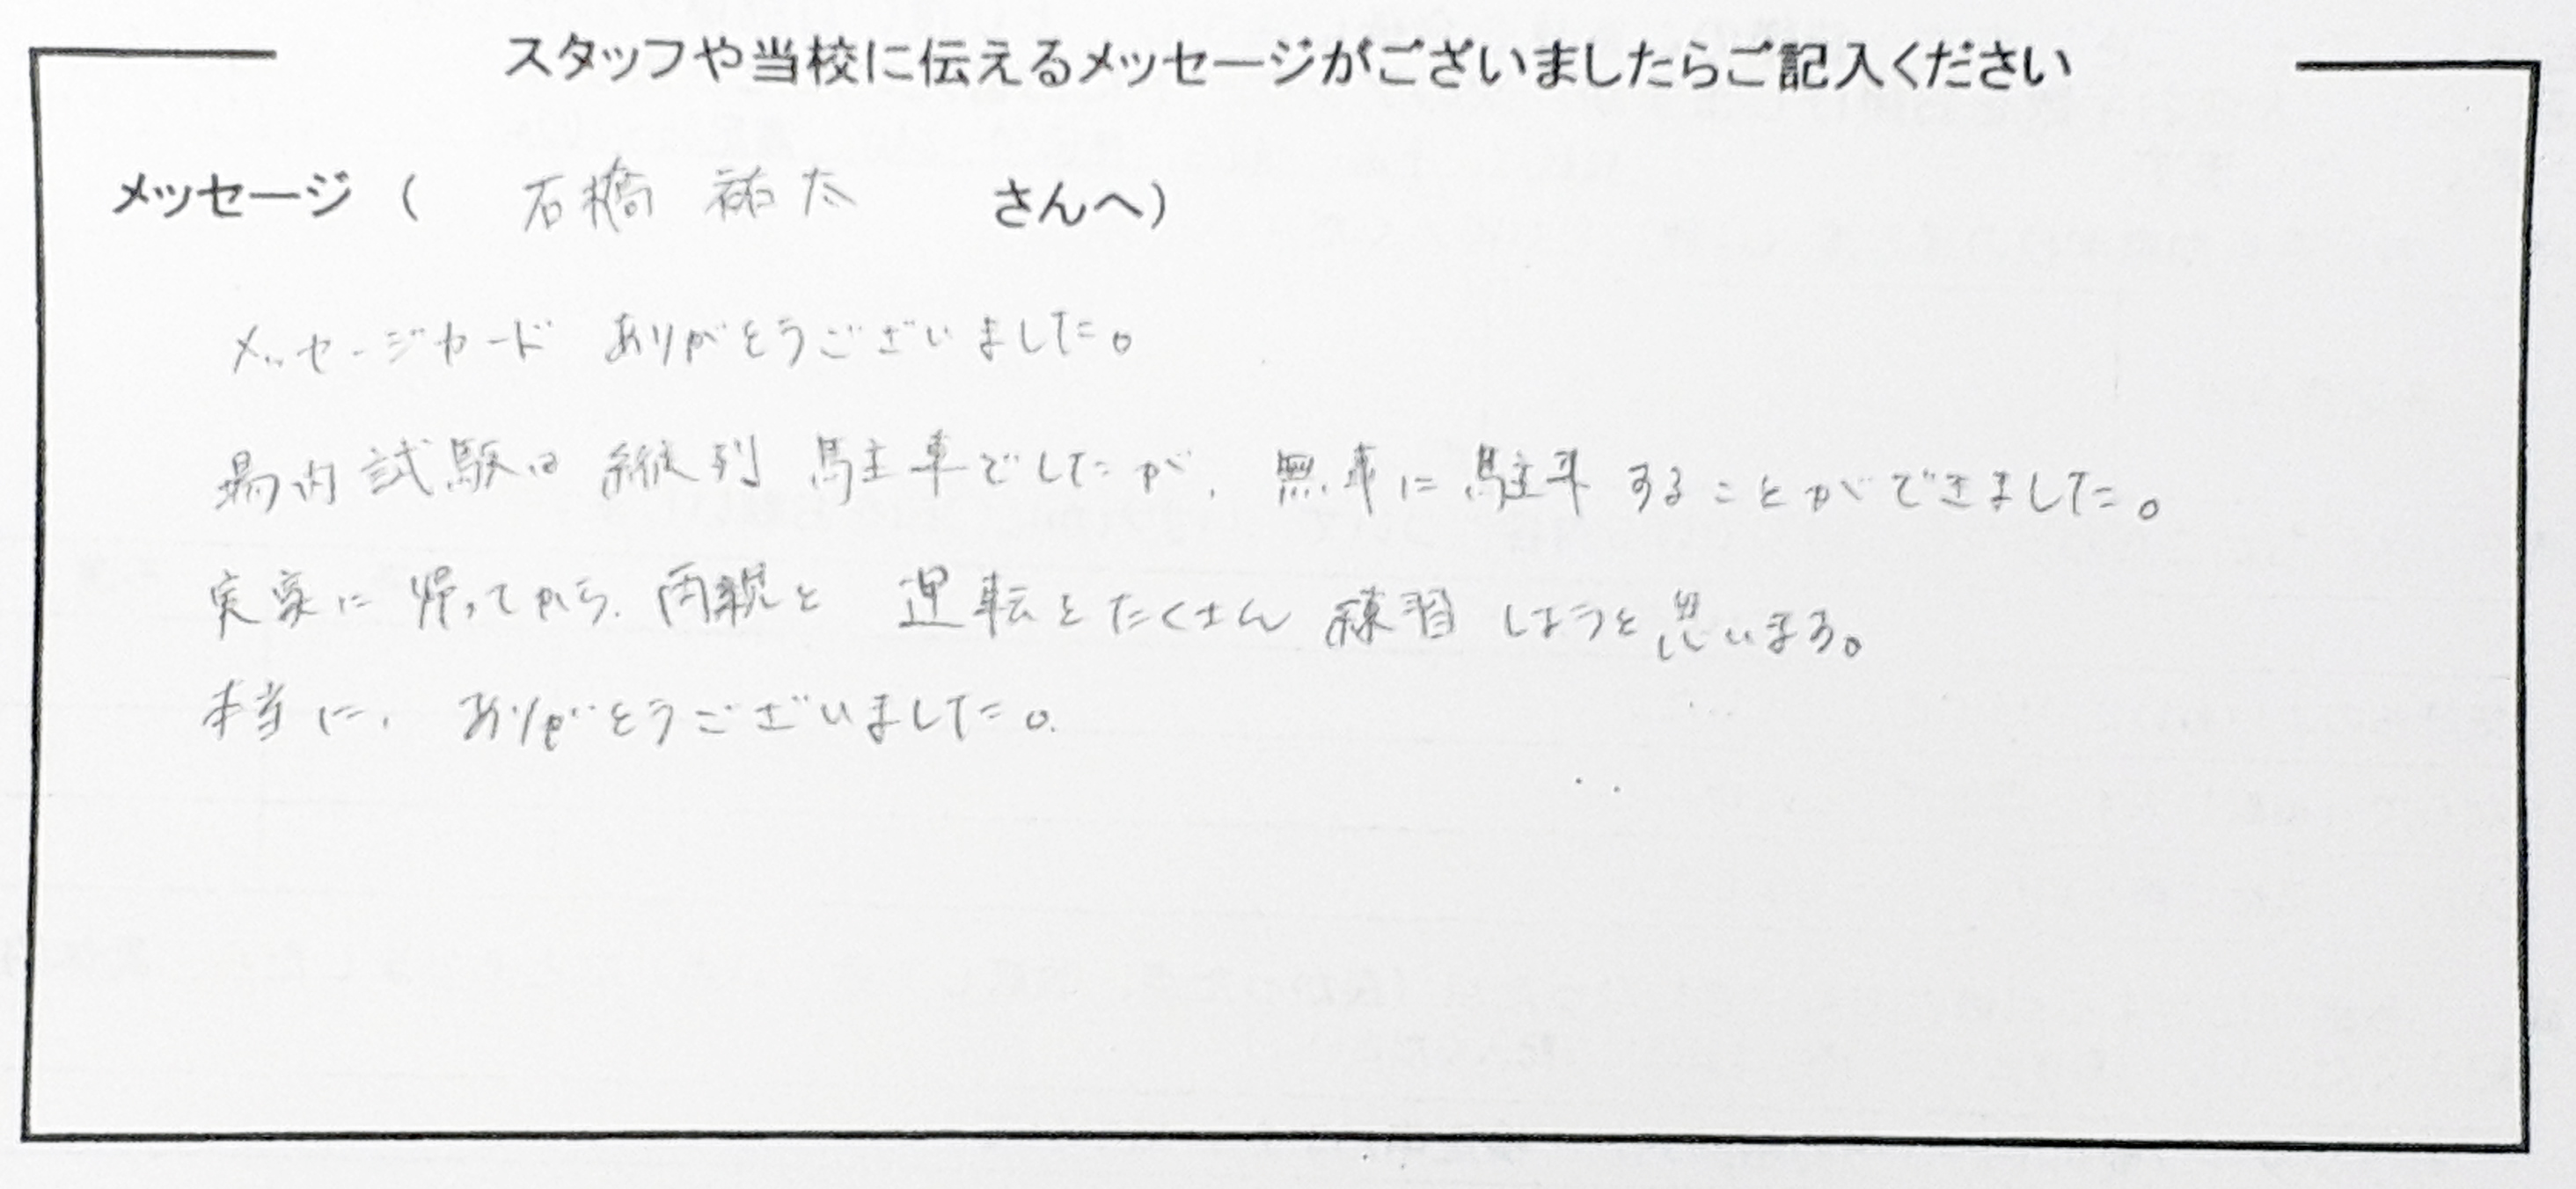 スタッフや当校に伝えるメッセージがございましたらご記入ください
メッセージ ( 石橋 祐太 さんへ)
メッセージカード ありがとうございました。
場内試験は 縦列 駐車でしたが、無事に 駐車 することができました。
実家に 帰ってから、両親と 運転をたくさん 練習 しようと思います。
本当に、ありがとうございました。